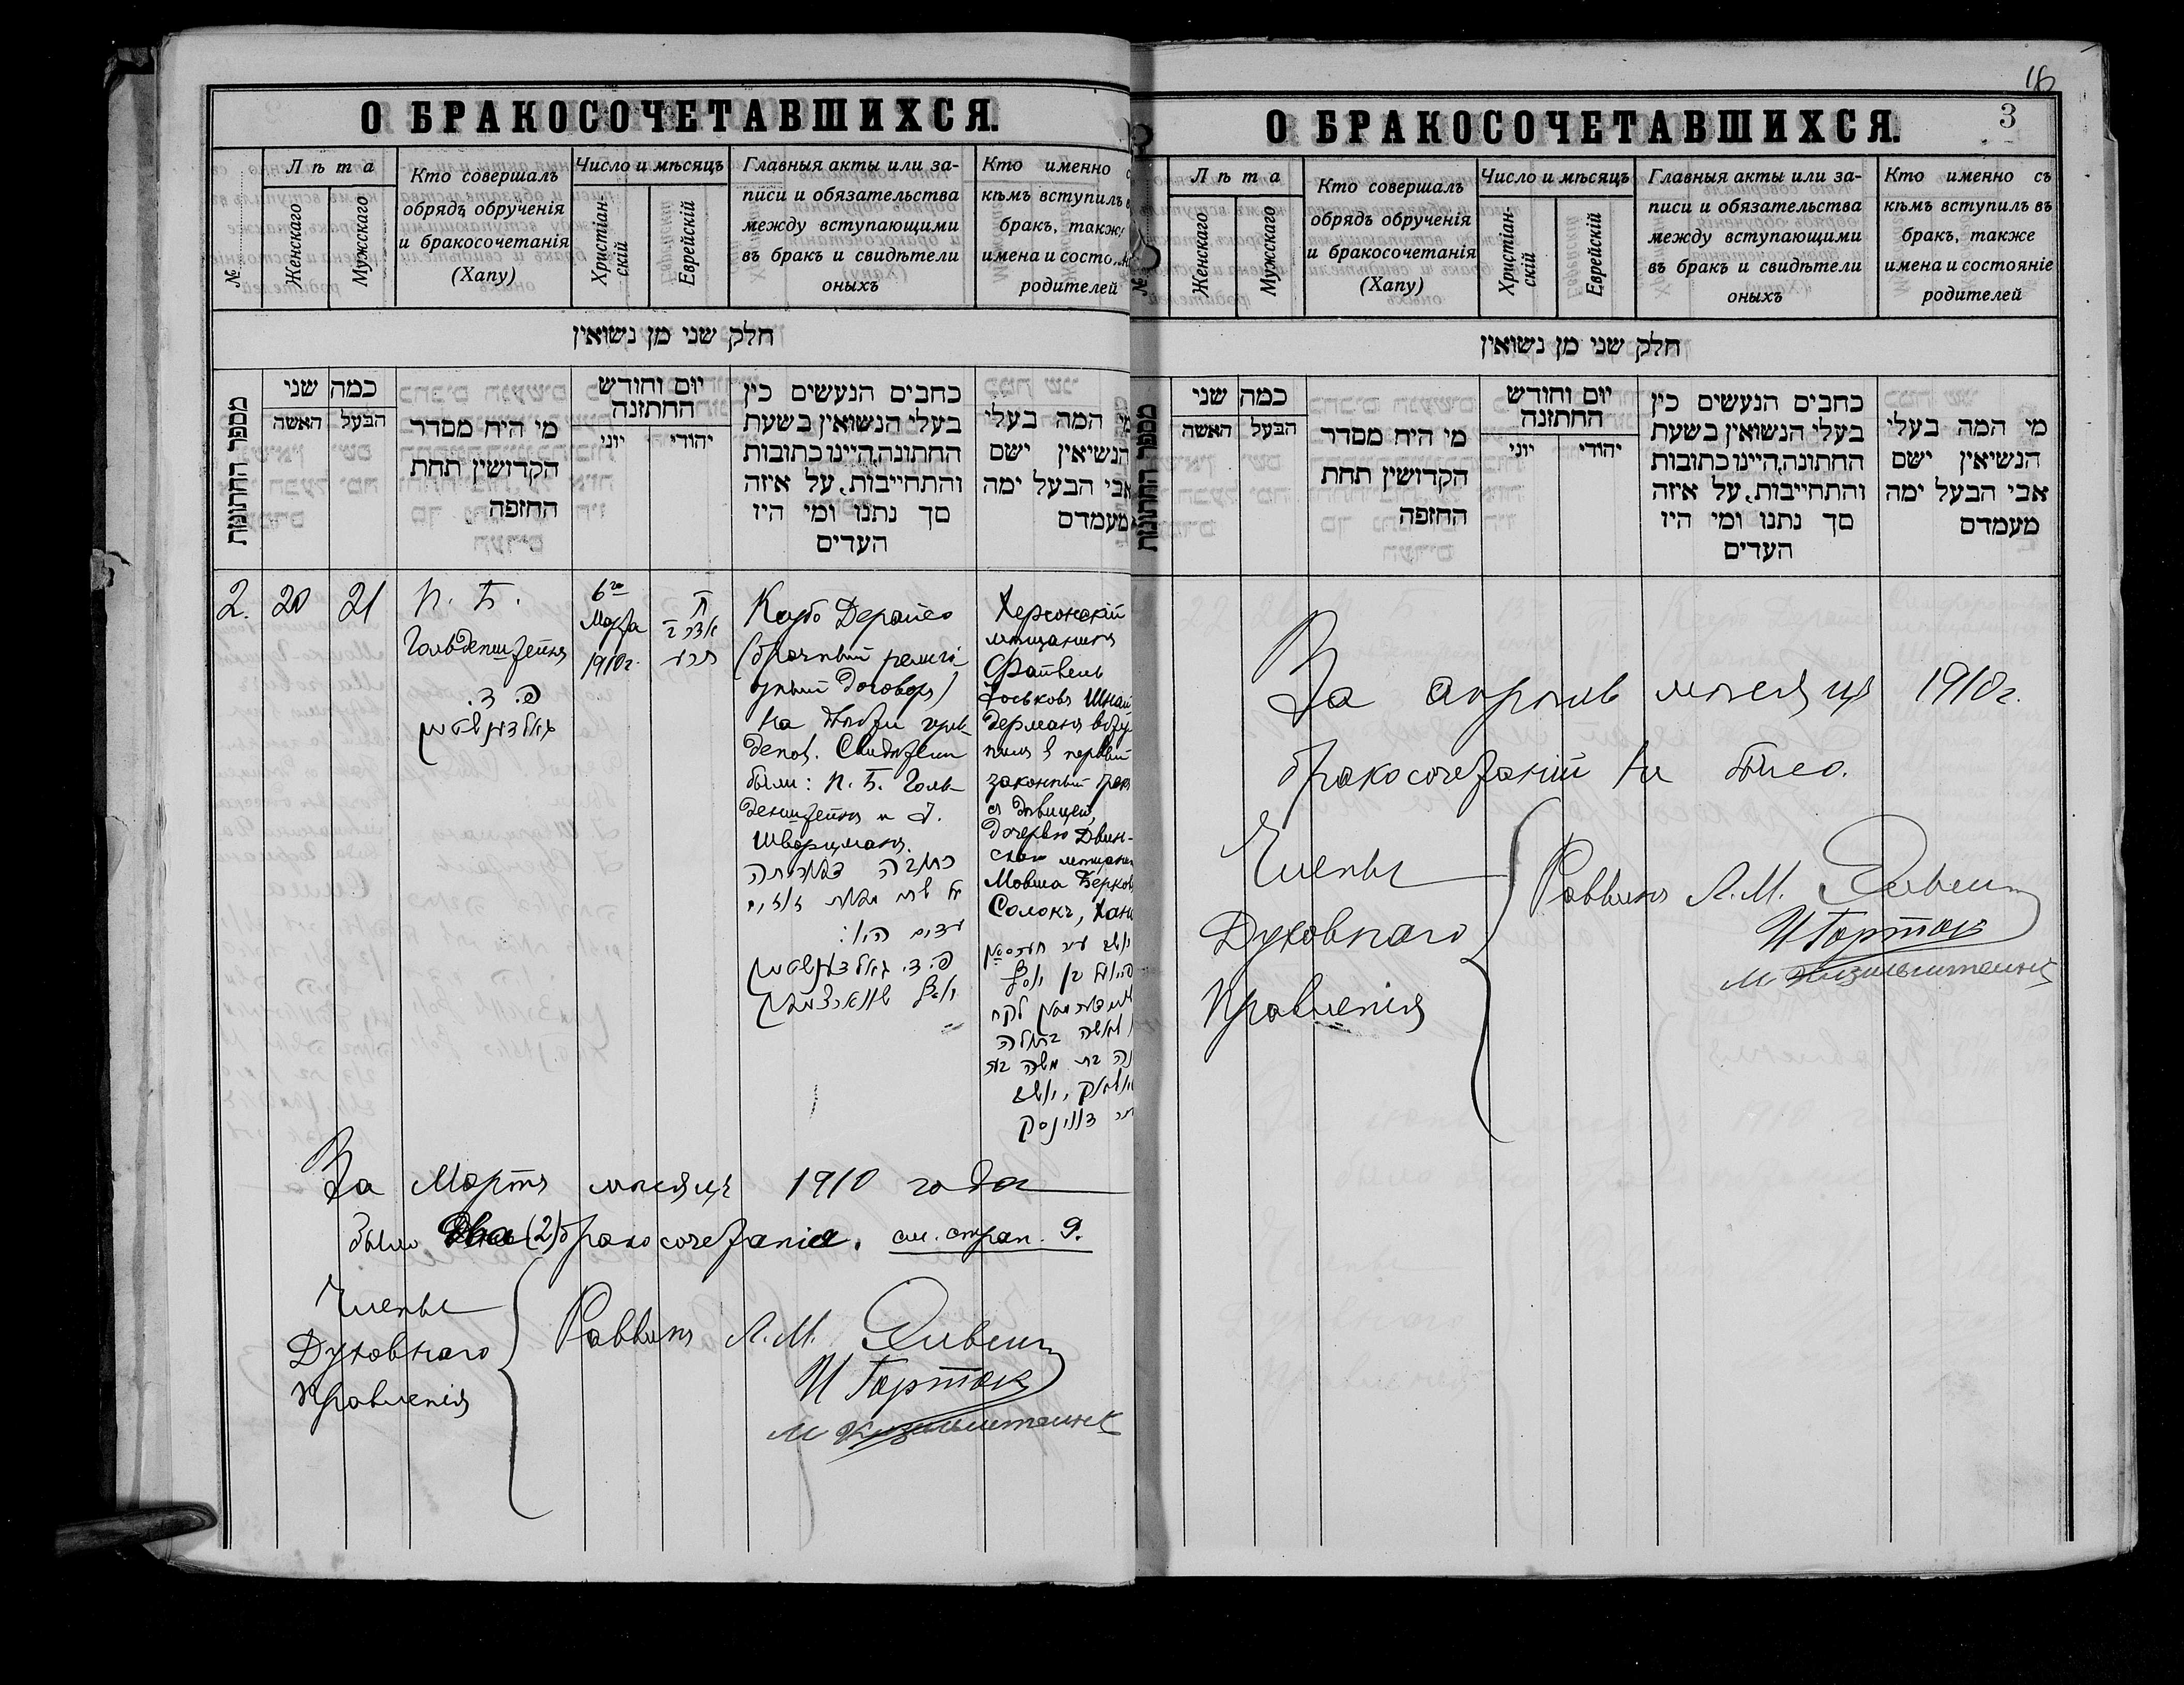 О БРАКОСОЧЕТАВШИХСЯ.
№
Лѣта
Женскаго
Мужскаго
Кто совершалъ
обрядъ обрученія
и бракосочетанія
(Хапу)
Число и мѣсяцъ
Христіан-
скій
Еврейскій
Главныя акты или за-
писи и обязательства
между вступающими
въ бракъ и свидѣтели
оныхъ
Кто именно
кѣмъ вступилъ
бракъ, также
имена и состо
родителей
חלק שני מן נשואין
מספר החתונות
כמה שני
האשה
הבעל
מי היח מסדר
הקדושין תחת
החופה
יום וחודש
החתונה
יוני
יהודי
כחבים הנעשים כין
בעלי הנשואין בשעת
החתונה,היינו כתובות
והתחייבות, על איזה
סך נתנו ומי היו
העדים
המה בעלי
הנשיאין ישם
אבי הבעל ימה
מעמדם
2.
20
21
П. Б.
Гольденштейнъ
פ. ד.
גאלדענשטיין
6го
Марта
1910 г.
Ксубо Дерайсо
(брачный религі-
озный договоръ)
На двѣсти зл
Свидѣтели
были: П. Б. Голь-
денштейнъ и І.
Шварцманъ.
עדים היו:
פ. ד. גאלדענשטיין
יוסף שווארצמאן
Херсонскій
мѣщанинъ
Файвель
Іоськовъ Шнай
дерманъ всту
пилъ въ первый
законный бракъ
съ дѣвицей,
дочерью Двин-
скаго мѣщанин
Мовша Берков
Солокъ, Хан
בן יוסף
לקח
לאשה בתולה
בת משה
דווינסק
За Мартъ мѣсяцъ 1910 года
было два (2) бракосочетанія. см. стран. 9.
Члены
Духовнаго
Правленія
Раввинъ Л. М.
И Горток
О БРАКОСОЧЕТАВШИХСЯ.
3
№
Лѣта
Женскаго
Мужскаго
Кто совершалъ
обрядъ обрученія
и бракосочетанія
(Хапу)
Число и мѣсяцъ
Христіан-
скій
Еврейскій
Главныя акты или за-
писи и обязательства
между вступающими
въ бракъ и свидѣтели
оныхъ
Кто именно съ
кѣмъ вступилъ въ
бракъ, также
имена и состояніе
родителей
חלק שני מן נשואין
מספר החתונות
כמה שני
האשה
הבעל
מי היח מסדר
הקדושין תחת
החופה
יום וחודש
החתונה
יוני
יהודי
כחבים הנעשים כין
בעלי הנשואין בשעת
החתונה,היינו כתובות
והתחייבות, על איזה
סך נתנו ומי היו
העדים
מי המה בעלי
הנשיאין ישם
אבי הבעל ימה
מעמדם
За апрѣль мѣсяцъ 1910 г.
бракосочетаній не было.
Члены
Духовнаго
Правленія
Раввинъ Л. М.
И Горток